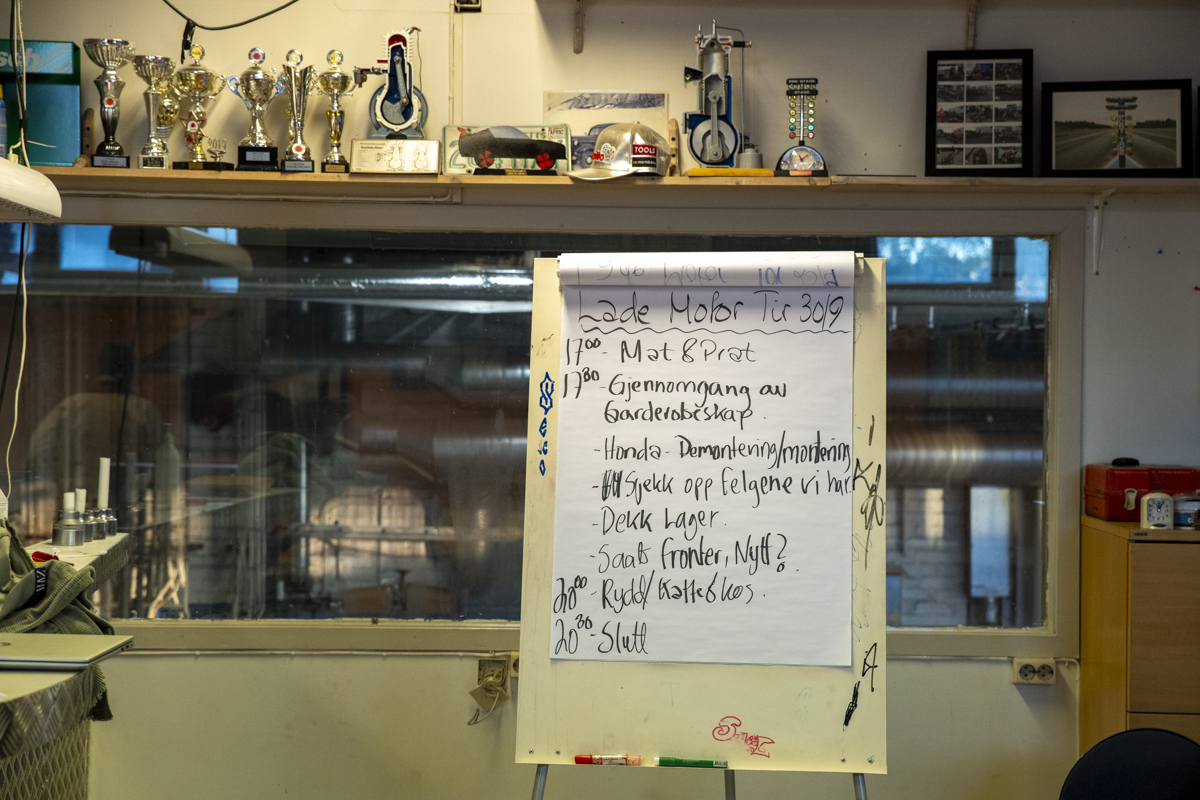 TOOLS
Lade Motor Tir 30/9
17⁰⁰ - Mat & Prat
17³⁰ - Gjennomgang av
Garderobeskap.
- Honda - Demontering/montering
- Sjekk opp felgene vi har
- Dekk Lager.
- Saab fronter, Nytt?
20⁰⁰ - Rydd/Kaffe&kos.
20³⁰ - Slutt